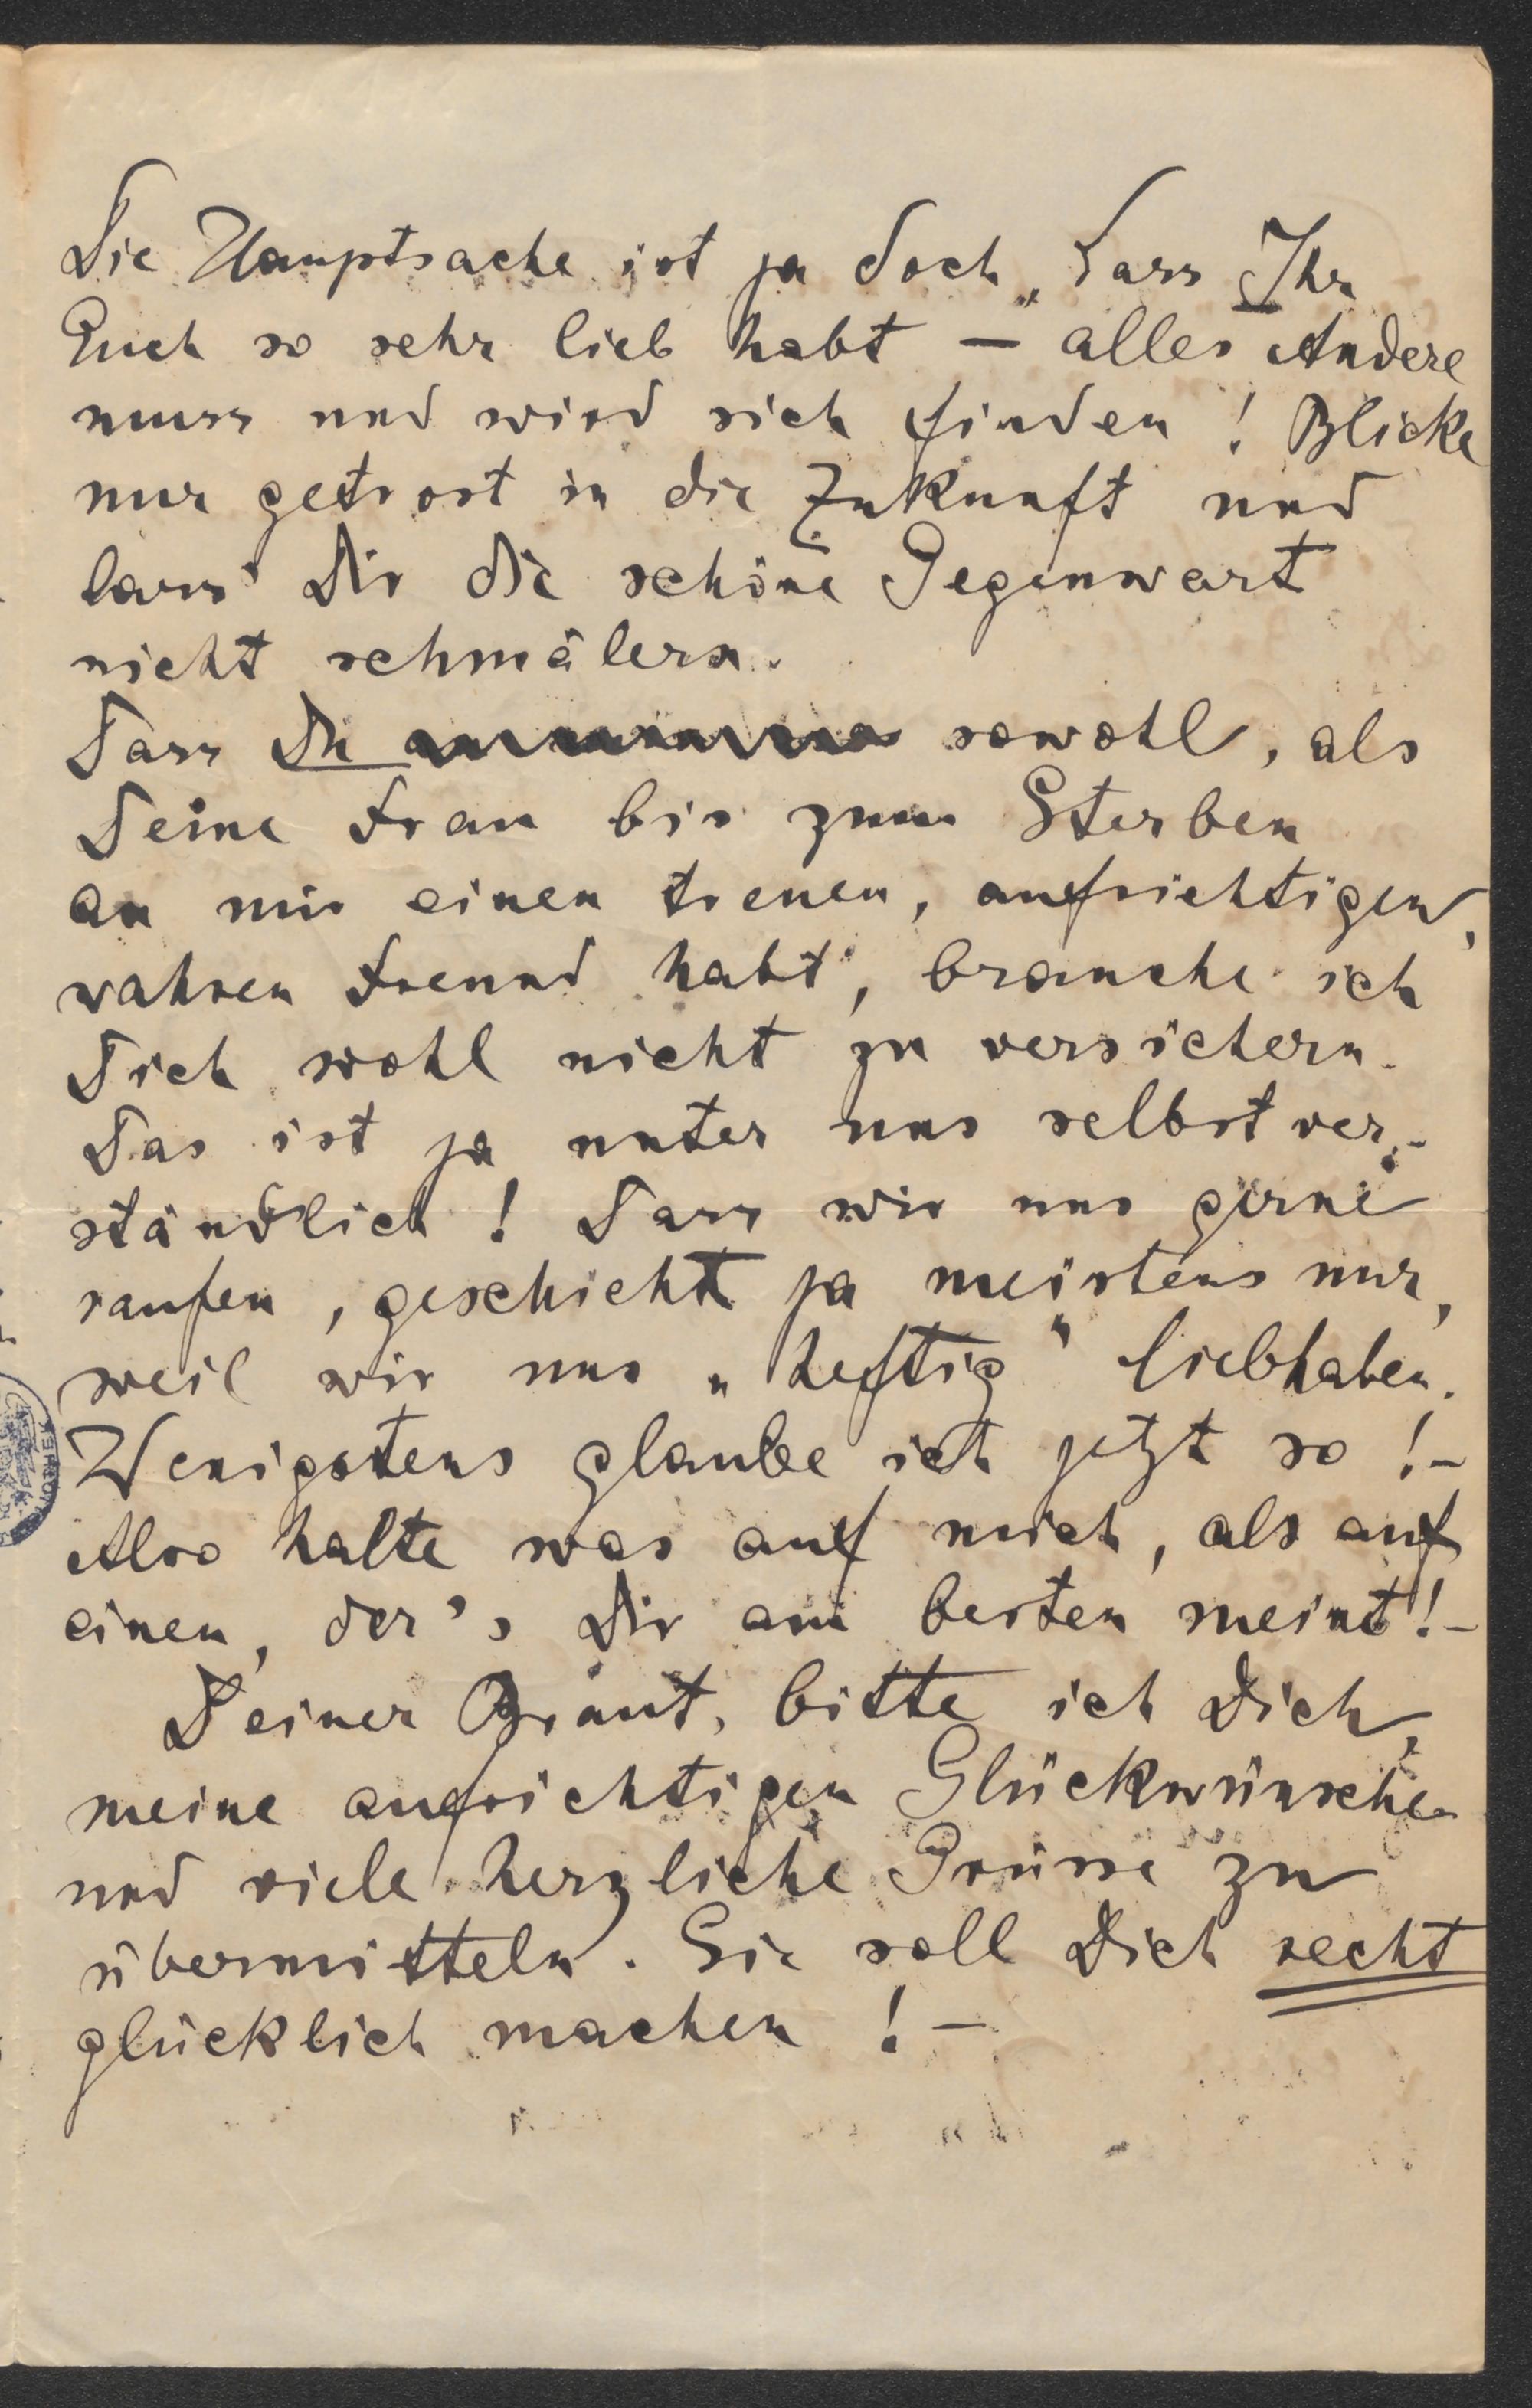 Die Hauptsache ist ja doch, dass Ihr
Euch so sehr lieb habt – alles Andere
muss und wird sich finden! Blicke
nur getrost in die Zukunft und
lass' Dir die schöne Gegenwart
nicht schmälern.
Dass Du sowohl, als
Deine Frau bis zum Sterben
an mir einen treuen, aufrichtigen,
wahren Freund habt, brauche ich
Dich wohl nicht zu versichern.
Das ist ja unter uns selbstver-
ständlich! Dass wir uns gerne
raufen, geschieht ja meistens nur,
weil wir uns „heftig“ liebhaben.
Wenigstens glaube ich jetzt so!–
Also halte was auf mich, als auf
einen, der's Dir am besten meint!–
Deiner Braut, bitte ich Dich,
meine aufrichtigen Glückwünsche
und viele herzliche Grüsse zu
übermitteln. Sie soll Dich recht
glücklich machen!–